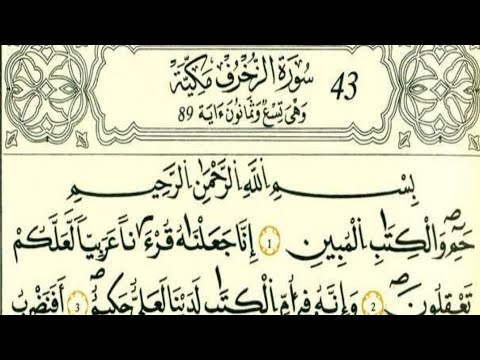 سُورَةُ الزُّخْرُفِ مَكِّيَّةٌ 43
وَهْىَ تِسْعٌ وَثَمَانُونَ ءَايَةً 89
بِسْمِ اللَّهِ الرَّحْمَٰنِ الرَّحِيمِ
حَمِٓ وَالْكِتَٰبِ الْمُبِينِ 1 إِنَّا جَعَلْنَٰهُ قُرْءَٰناً عَرَبِيّاً لَّعَلَّكُمْ
تَعْقِلُونَ 2 وَإِنَّهُ فِى أُمِّ الْكِتَٰبِ لَدَيْنَا لَعَلِىٌّ حَكِيمٌ 3 أَفَنَضْرِبُ